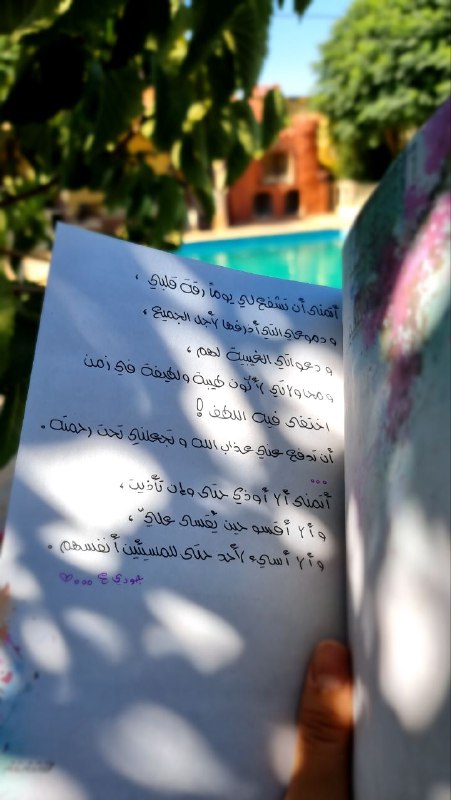 أتمنى أن تشفع لي يوماً رقة قلبي ،
و دموعي التي أذرفها لأجل الجميع ،
و دعواتي الغيبية لهم ،
و محاولاتي لأكون طيبة ولطيفة في زمن
اختفى فيه اللطف !
أن تدفع عني عذاب الله و تجعلني تحت رحمته .
...
أتمنى ألا أوذي حتى وإن تأذيت ،
و ألا أقسو حين يُقسى عليّ ،
و ألا أسيء لأحد حتى للمسيئين أنفسهم .
جودي ع ...♡